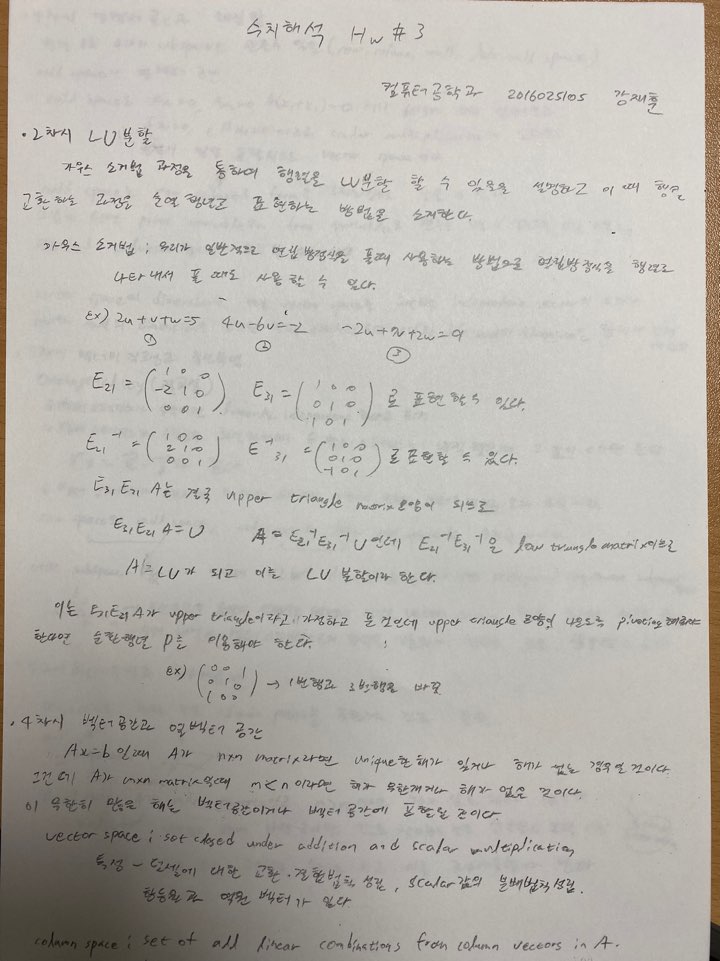 수치해석 Hw #3
컴퓨터공학과 2016025105 강재훈
· 2차시 LU분할
가우스 소거법 과정을 통하여 행렬을 LU분할 할 수 있음을 설명하고 이 때 행을
교환하는 과정을 순열행렬로 표현하는 방법을 소개한다.
가우스 소거법 ; 우리가 일반적으로 연립방정식을 풀때 사용하는 방법으로 연립방정식을 행렬로
나타내서 풀 때도 사용할 수 있다.
ex) 2u+v+w=5 4u-6v=-2 -2u+7v+2w=9
① ② ③
E21 = (1 0 0 / -2 1 0 / 0 0 1) E31 = (1 0 0 / 0 1 0 / 1 0 1) 로 표현할 수 있다.
E21^-1 = (1 0 0 / 2 1 0 / 0 0 1) E^-1 31 = (1 0 0 / 0 1 0 / -1 0 1) 로 표현할 수 있다.
E31 E21 A는 결국 upper triangle matrix모양이 되므로
E31 E21 A = U A = E21^-1 E31^-1 U 인데 E21^-1 E31^-1 은 low triangle matrix이므로
A = LU가 되고 이를 LU 분할이라 한다.
이는 E31E21 A가 upper triangle이라고 가정하고 푼 것인데 upper triangle 모양이 나오도록 pivoting 해야
한다면 순환행렬 P를 이용해야 한다.
ex) (0 0 1 / 0 1 0 / 1 0 0) → 1번행과 3번행을 바꿈
· 4차시 벡터공간과 열벡터 공간
Ax=b 일때 A가 nxn matrix라면 unique한 해가 있거나 해가 없는 경우일 것이다.
그런데 A가 mxn matrix일때 m<n 이라면 해가 무한개거나 해가 없을 것이다.
이 무한히 많은 해는 벡터공간이거나 벡터공간에 포함될 것이다.
vector space ; set closed under addition and scalar multiplication
특성 - 덧셈에 대한 교환·결합법칙 성립, scalar곱의 분배법칙성립,
항등원과 역원 벡터가 있다
column space ; set of all linear combinations from column vectors in A.